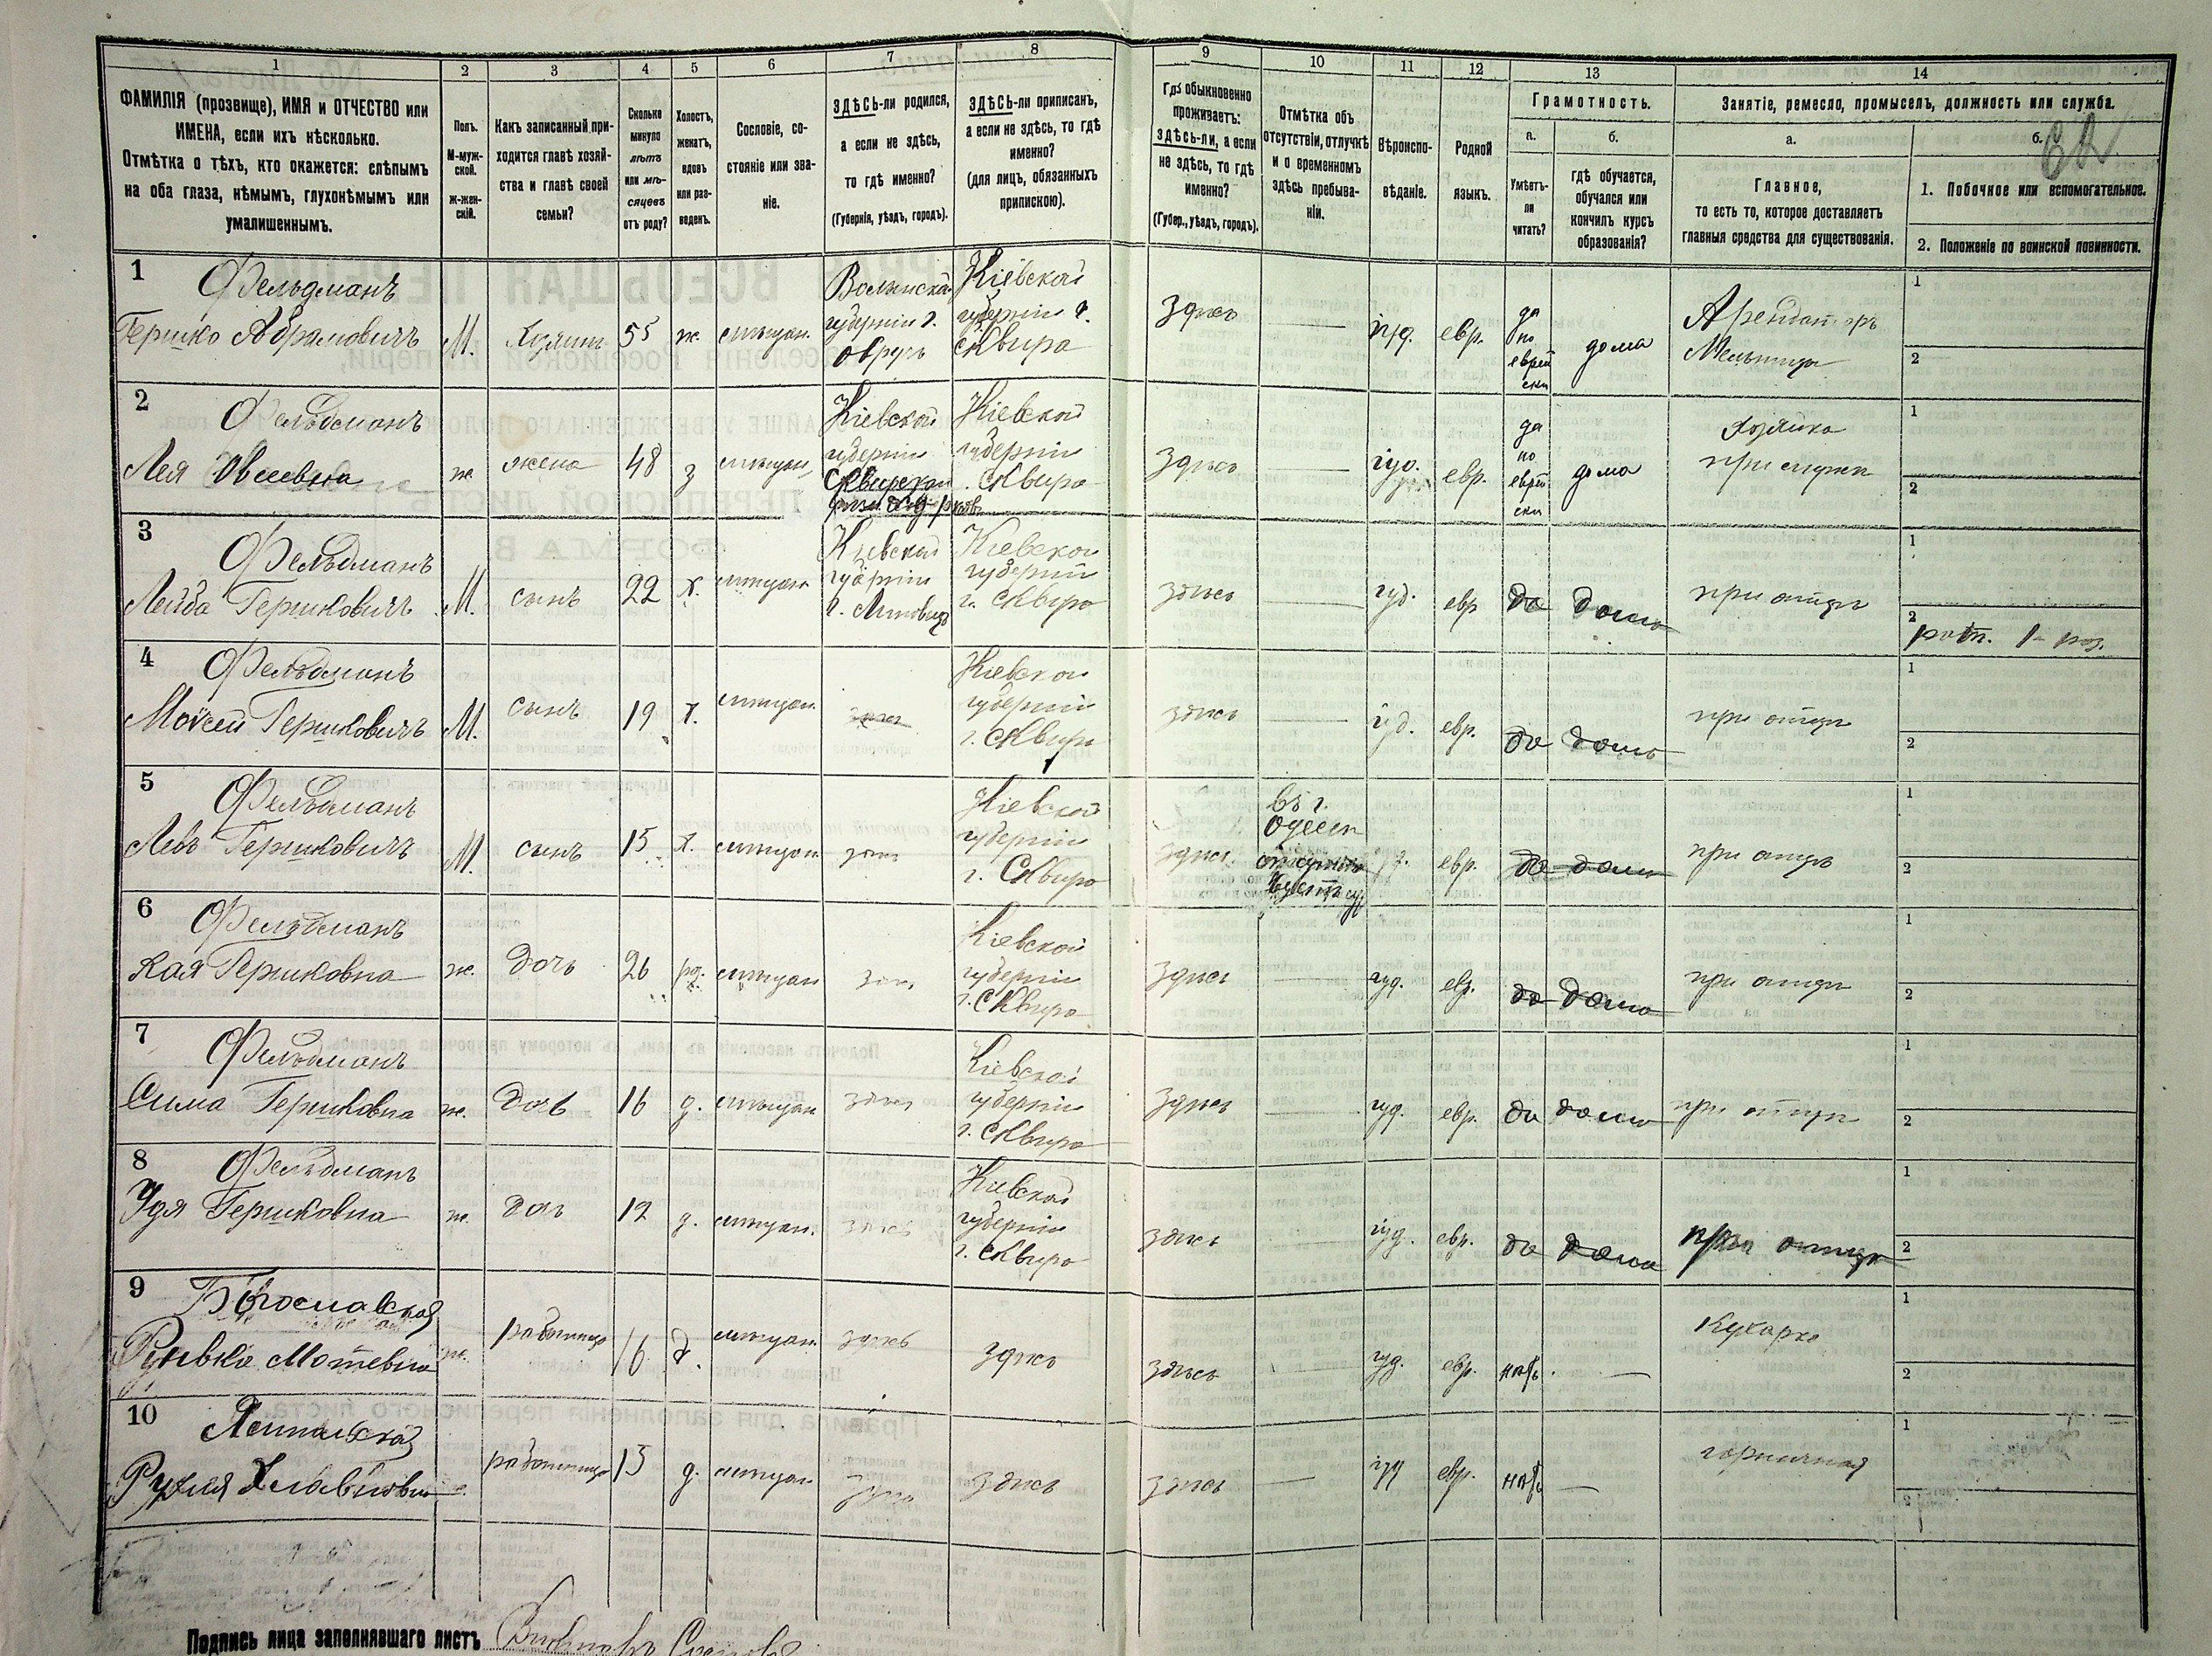 1 2 3 4 5 6 7 8 9 10 11 12 13 14
ФАМИЛІЯ (прозвище), ИМЯ и ОТЧЕСТВО или
ИМЕНА, если ихъ нѣсколько.
Отмѣтка о тѣхъ, кто окажется: слѣпымъ
на оба глаза, нѣмымъ, глухонѣмымъ или
умалишеннымъ.
Полъ.
М-муж-
ской.
ж-жен-
скій.
Какъ записанный при-
ходится главѣ хозяй-
ства и главѣ своей
семьи?
Сколько
минуло
лѣтъ
или мѣ-
сяцевъ
отъ роду?
Холостъ,
женатъ,
вдовъ
или раз-
веденъ.
Сословіе, со-
стояніе или зва-
ніе.
ЗДѢСЬ-ли родился,
а если не здѣсь,
то гдѣ именно?
(Губернія, уѣздъ, городъ).
ЗДѢСЬ-ли приписанъ,
а если не здѣсь, то гдѣ
именно?
(для лицъ, обязанныхъ
припискою).
Гдѣ обыкновенно
проживаетъ:
ЗДѢСЬ-ли, а если
не здѣсь, то гдѣ
именно?
(Губер., уѣздъ, городъ).
Отмѣтка объ
отсутствіи, отлучкѣ
и о временномъ
здѣсь пребыва-
ніи.
Вѣроиспо-
вѣданіе.
Родной
языкъ.
Грамотность.
а.
Умѣетъ-
ли
читать?
б.
гдѣ обучается,
обучался или
кончилъ курсъ
образованія?
Занятіе, ремесло, промыселъ, должность или служба.
а.
Главное,
то есть то, которое доставляетъ
главныя средства для существованія.
б.
1. Побочное или вспомогательное.
2. Положеніе по воинской повинности.
1
Фельдманъ
Гершко Абрамовичъ
М. Хозяинъ 55 ж. мѣщан.
Волынской
губерніи г.
Овручъ
Кіевской
губерніи г.
Сквира
здѣсь іуд. евр.
да
по
еврей
ски
дома
Арендаторъ
Мельницы
1
2
2
Фельдманъ
Лея Овсеевна
ж жена 48 з мѣщан.
Кіевской
губерніи
Сквирской
Кіевской
губерніи
Сквира
здѣсь іуд. евр.
да
по
еврей
ски
дома
Хозяйка
при мужѣ
1
2
3
Фельдманъ
Лейба Гершковичъ
М. сынъ 22 х. мѣщан
Кіевской
губерніи
Кіевской
губерніи
г. Сквира
здѣсь іуд. евр да дома
при отцѣ
1
2
ратн. 1 раз.
4
Фельдманъ
Мойсей Гершковичъ
М. сынъ 19 х. мѣщан. здѣсь
Кіевской
губерніи
г. Сквира
здѣсь іуд. евр. да дома
при отцѣ
1
2
5
Фельдманъ
Левъ Гершковичъ
М сынъ 15 х. мѣщан. здѣсь
Кіевской
губерніи
г. Сквира
здѣсь
въ г.
Одессѣ
евр. да дома
при отцѣ
1
2
6
Фельдманъ
Хая Гершковна
ж. дочь 26 мѣщан здѣсь
Кіевской
губерніи
г. Сквира
здѣсь іуд. евр. да дома
при отцѣ
1
2
7
Фельдманъ
Сима Гершковна
ж. дочь 16 д. мѣщан здѣсь
Кіевской
губерніи
г. Сквира
здѣсь іуд. евр. да дома
при отцѣ
1
2
8
Фельдманъ
Удя Гершковна
ж. дочь 12 д. мѣщан. здѣсь
Кіевской
губерніи
г. Сквира
здѣсь іуд. евр. да дома
при отцѣ
1
2
9
Богославская
Рувка Мотевна
ж. работница 16 д. мѣщан. здѣсь здѣсь здѣсь іуд. евр. нѣтъ
Кухарка
1
2
10
Рухля
работница 13 д. мѣщан здѣсь здѣсь здѣсь іуд евр. нѣтъ
горничная
1
2
Подпись лица заполнявшаго листъ